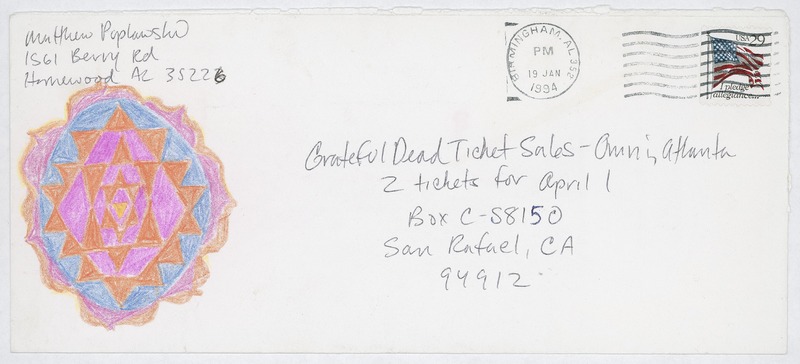 Matthew Poplawski
1561 Berry Rd
Homewood AL 35226
BIRMINGHAM, AL 352
PM
19 JAN
1994
USA 29
I pledge
allegiance...
Grateful Dead Ticket Sales - Omni, Atlanta
2 tickets for April 1
Box C-S8150
San Rafael, CA
94912